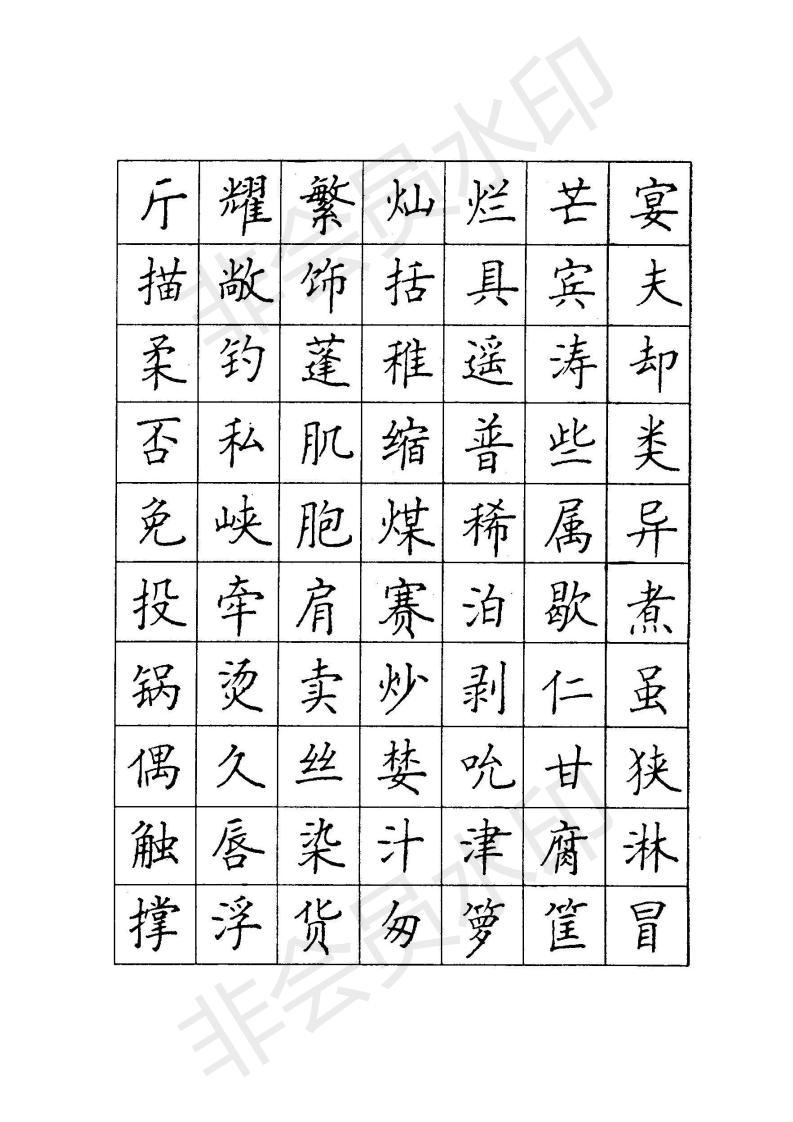 斤 耀 繁 灿 烂 芒 宴
描 敞 饰 括 具 宾 夫
柔 钓 蓬 稚 遥 涛 却
否 私 肌 缩 普 些 类
免 峡 胞 煤 稀 属 异
投 牵 肩 赛 泊 歇 煮
锅 烫 卖 炒 剥 仁 虽
偶 久 丝 婪 吮 甘 狭
触 唇 染 汁 津 腐 淋
撑 浮 货 匆 箩 筐 冒
非会员水印
非会员水印